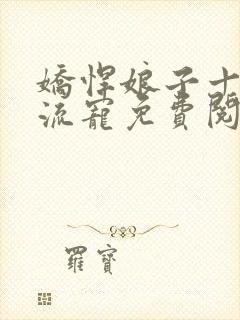 嬌悍娘子十
流寵免費閱
羅寶